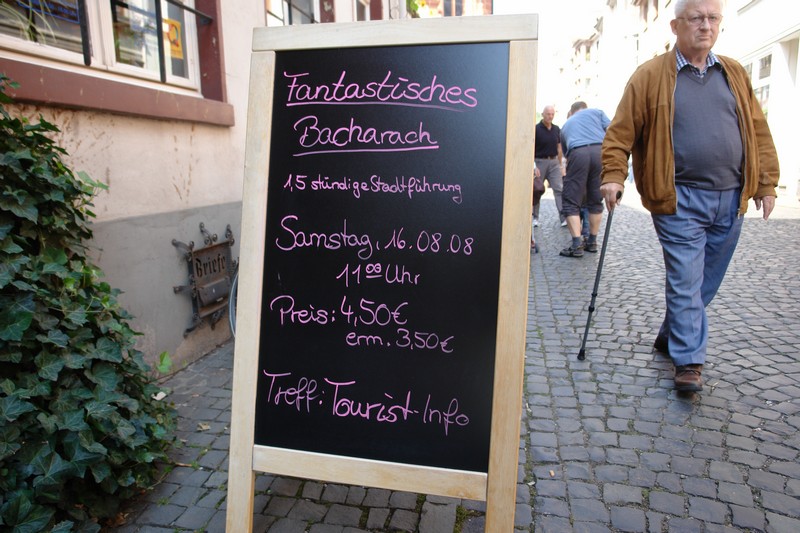 Fantastisches
Bacharach
1,5 stündige Stadtführung
Samstag, 16.08.08
11⁰⁰ Uhr
Preis: 4,50€
erm. 3,50€
Treff: Tourist-Info
Briefe